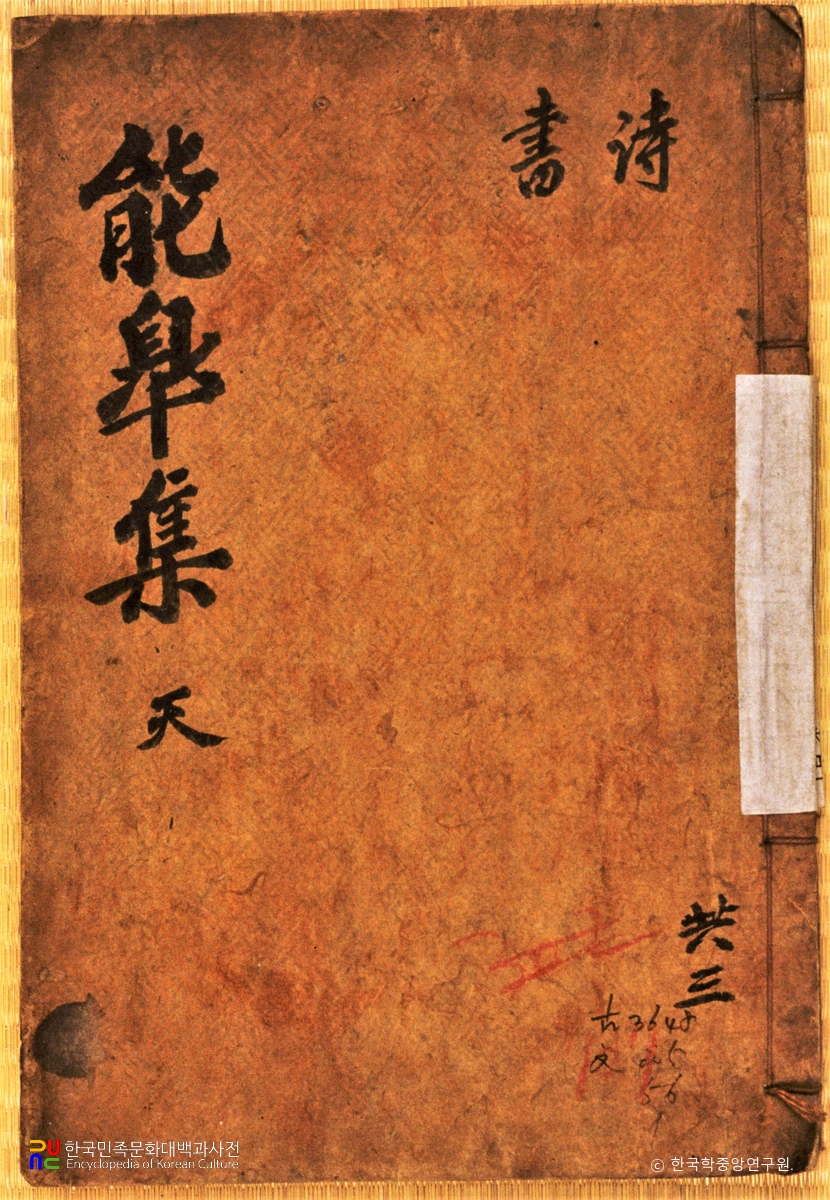 詩
書
能皐集 天
共三
古3648
文
56
한국민족문화대백과사전
Encyclopedia of Korean Culture
© 한국학중앙연구원.